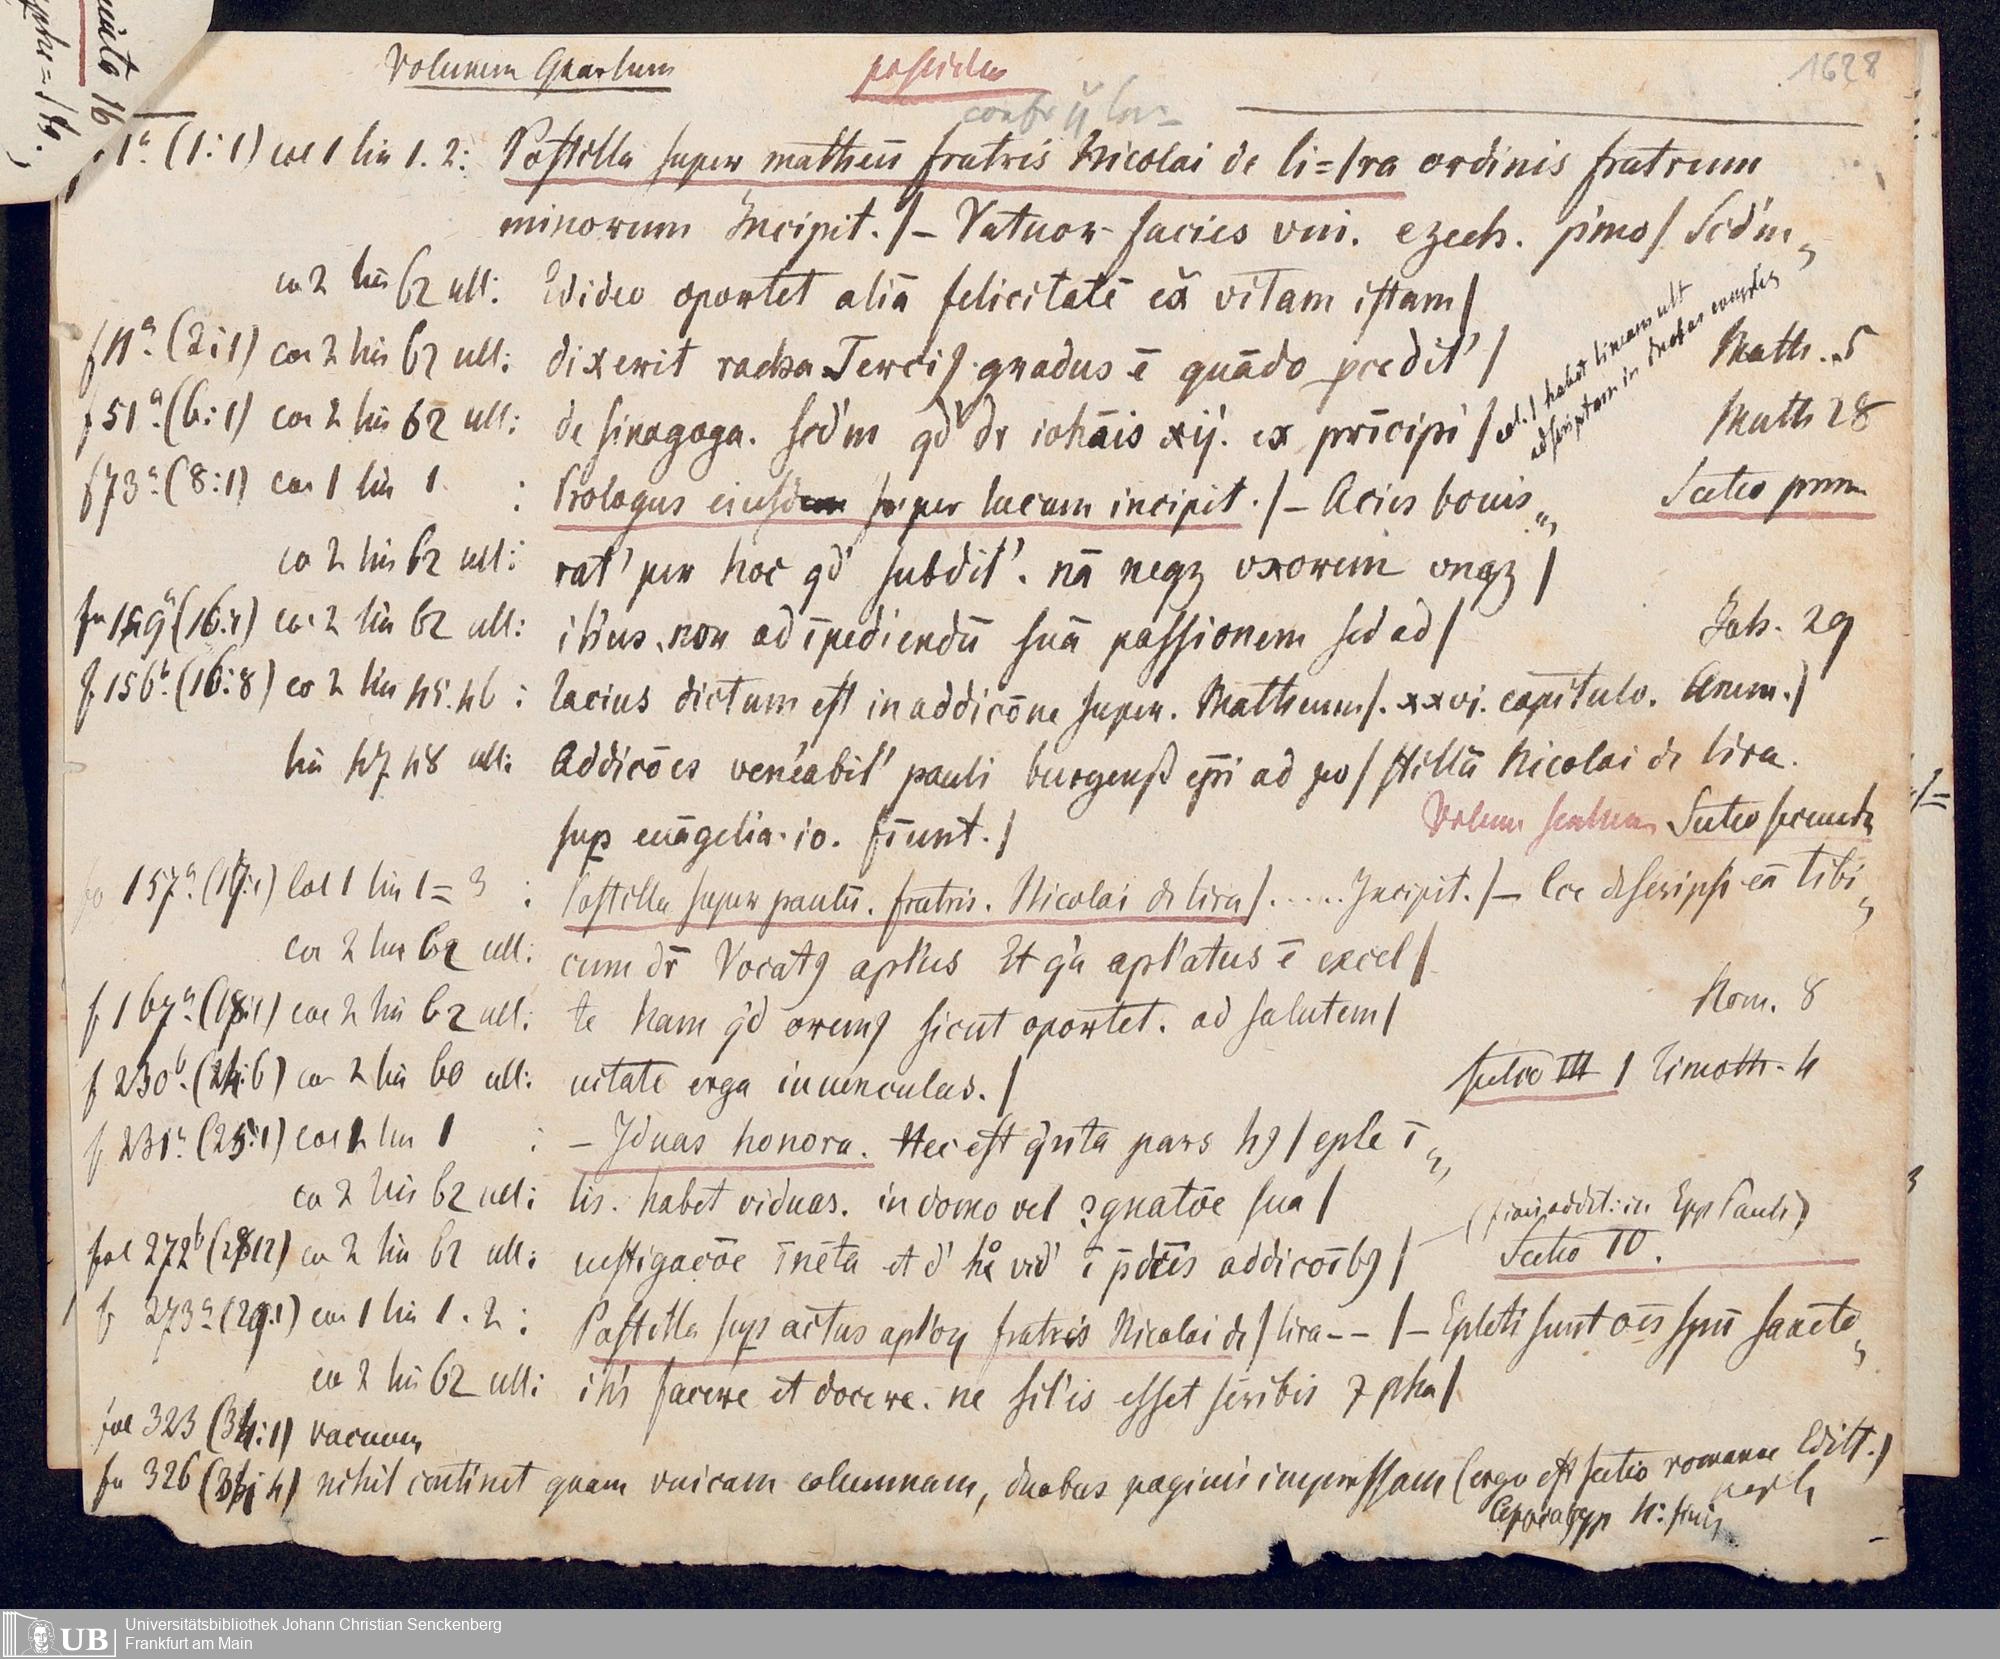 Volumen Quartum
1628
1a. (1:1) col 1 lin 1. 2: Postilla super matheū fratris Nicolai de li=/ra ordinis fratrum
minorum Incipit. /– Vatuor facies vni. ezech. p'mo/ Scd'm
co 2 lin 62 ult: Ideo oportet aliā felicitatē eē vitam istam/
f 11a. (2:1) co 2 lin 62 ult: dixerit racha Terciꝯ gradus ē quādo pcedit' / Math. 5
f 51a. (6:1) co 2 lin 62 ult: de sinagoga. scd'm qd' dr iohāis xij. ex prīcipi / Math 28
col. 1 habet lineam ult
adscriptam in duabus
f 73a. (8:1) co 1 lin 1 : Prologus eiusdem super lucam incipit. /– Acies bouis Sectio prima
co 2 lin 62 ult: rat' per hoc qd' subdit'. nā neqz vxorem vnqz /
fo 149a (16:1) co 2 lin 62 ult: ih'us. non ad īpediendū suā passionem sed ad / Joh. 29
f. 156b. (16:8) co 2 lin 45. 46 : lacius dictum est in addicōne super. Matheum/. xxvi. capitulo. Amen./
lin 47 48 ult: Addicōes venerabil' pauli burgensß epī ad po/stillā Nicolai de lira.
sup euāgelia. io. fīunt./
Sectio secunda
fo 157a. (17:1) Col 1 lin 1=3 : Postilla super paulū. fratris. Nicolai de lira/. . . . . Incipit. /– Ece descripsi eā tibi
co 2 lin 62 ult: cum dr̄ Vocatꝯ apl'us Et q'a apl'atus ē excel/
f 167a. (18:1) co 2 lin 62 ult: te Nam q'd oremꝯ sicut oportet. ad salutem/ Rom. 8
f 230b. (24:6) co 2 lin 60 ult: uitate erga iuuenculas. / Sectio III 1 Timoth. 4
f 231a. (25:1) col lin 1 : – Iduas honora. Hec est q'nta pars hꝯ / eple ī
co 2 lin 62 ult: lis. habet viduas. in domo vel ꝯgnatōe sua /
(finis addit: in Epp Pauli)
fol 272b (28:12) co 2 lin 62 ult: uestigacōe īnēta et d' h° vid' ī p̄dcīs addicōibꝯ / Sectio IV.
f 273a (29:1) co 1 lin 1. 2 : Postilla sup actus apl'oꝝ fratris Nicolai de / lira – – /– Epleti sunt oēs spū sancto
co 2 lin 62 ult: ih's facere et docere. ne sil'is esset scribis ⁊ pha/
fol 323 (34:1) vacuum
fo 326 (34:4) nihil continet quam vnicam columnam, duabus paginis impressam (ergo est sectio romanae Editt.)
Apocalyp 4: finis
Universitätsbibliothek Johann Christian Senckenberg
Frankfurt am Main
UB